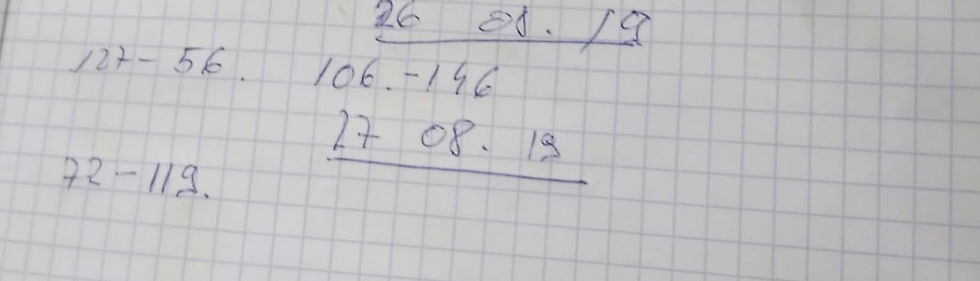 26 08. 19
127-56. 106.-146
27 08. 19
72-119.